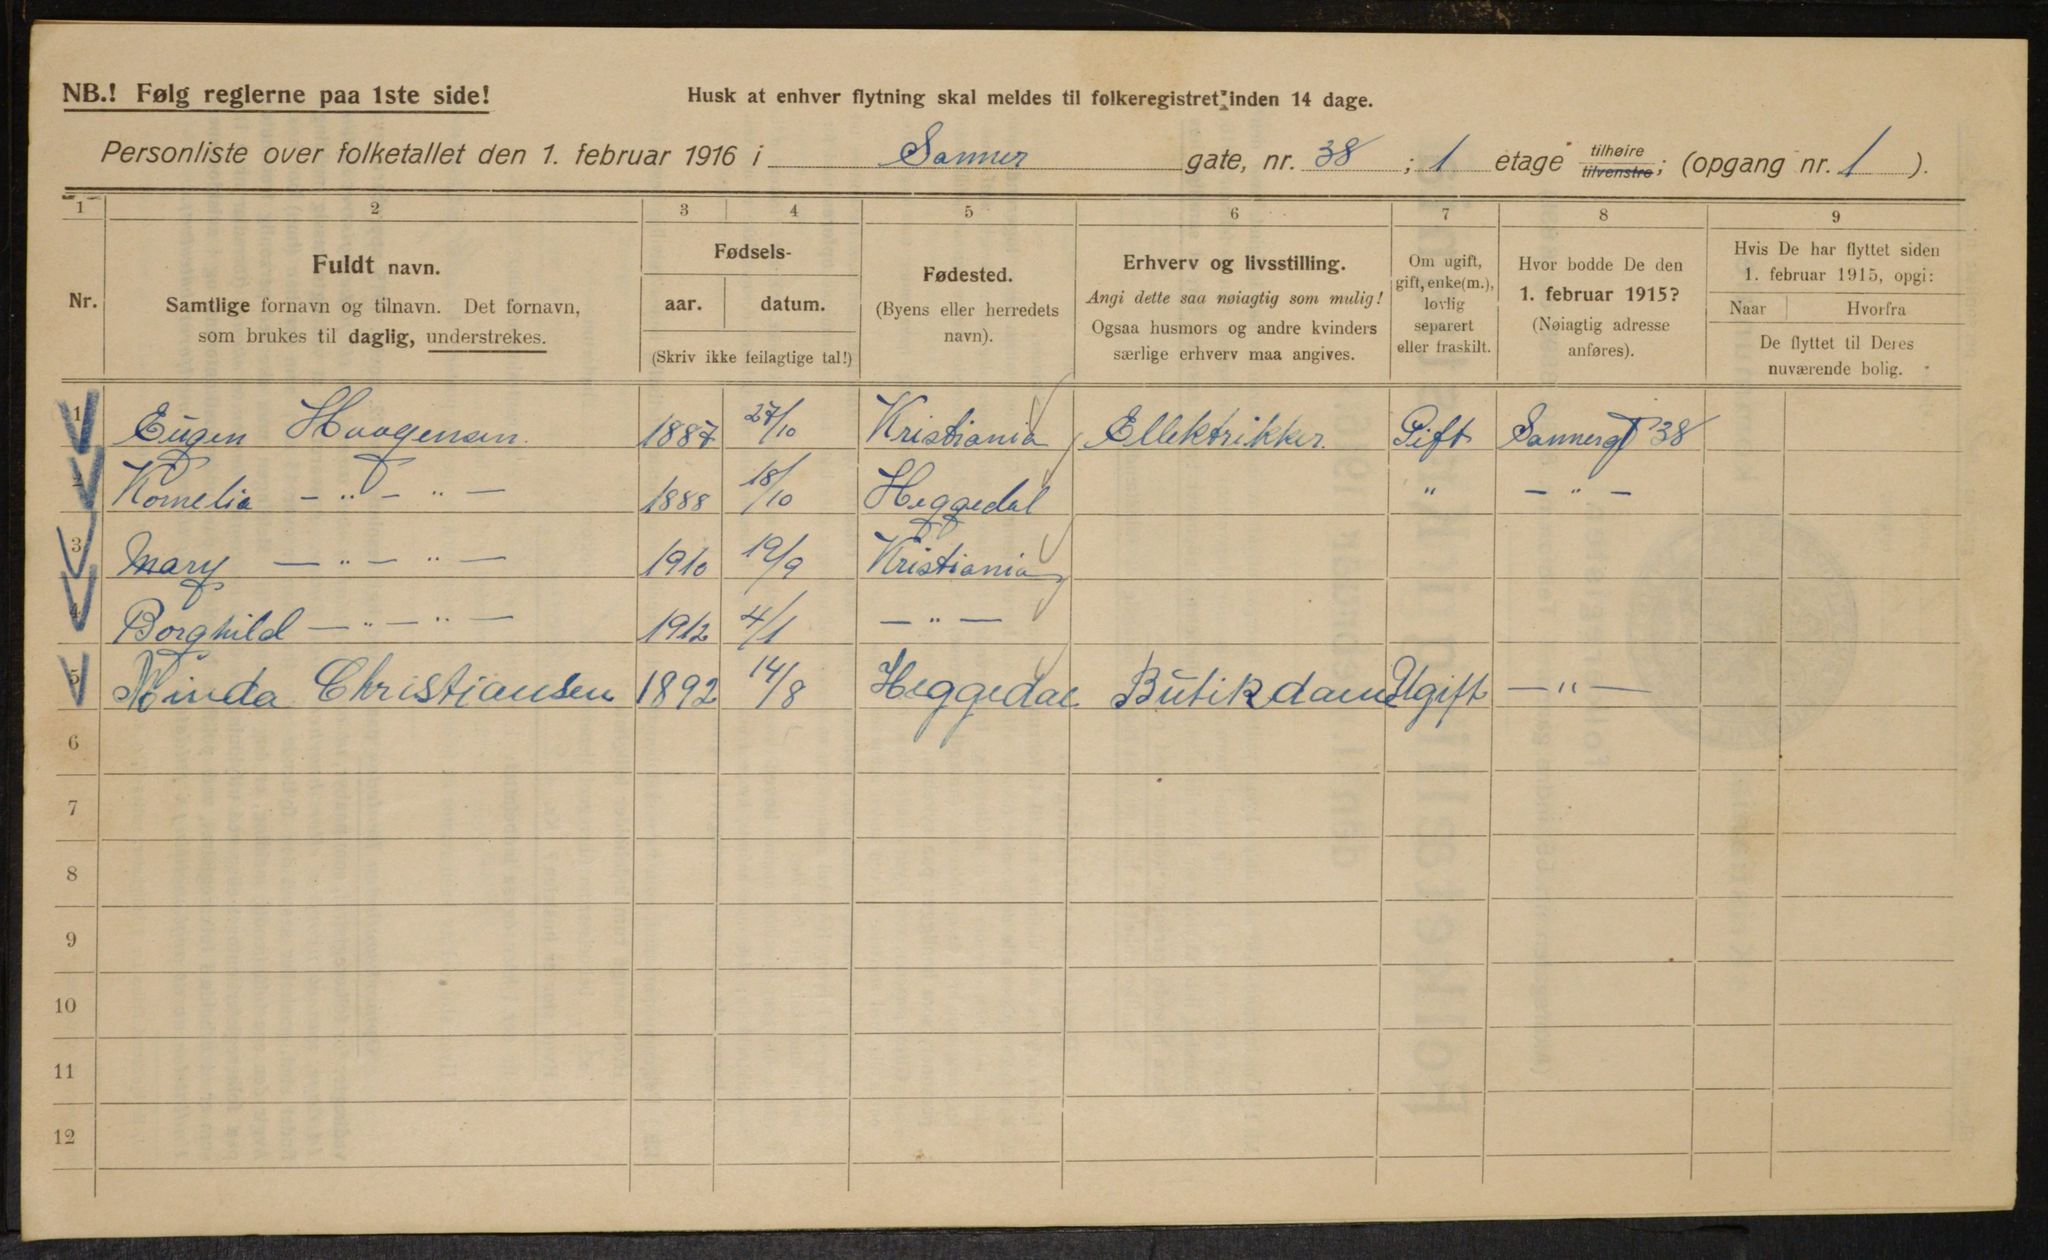 NB.! Følg reglerne paa 1ste side!
Husk at enhver flytning skal meldes til folkeregistret inden 14 dage.
Personliste over folketallet den 1. februar 1916 i Sanner gate, nr. 38 ; 1 etage tilhøire tilvenstre; (opgang nr. 1 ).
1 2 3 4 5 6 7 8 9
Nr.
Fuldt navn.
Samtlige fornavn og tilnavn. Det fornavn,
som brukes til daglig, understrekes.
Fødsels-
aar. datum.
(Skriv ikke feilagtige tal!)
Fødested.
(Byens eller herredets
navn).
Erhverv og livsstilling.
Angi dette saa nøiagtig som mulig!
Ogsaa husmors og andre kvinders
særlige erhverv maa angives.
Om ugift,
gift, enke(m.),
lovlig
separert
eller fraskilt.
Hvor bodde De den
1. februar 1915?
(Nøiagtig adresse
anføres).
Hvis De har flyttet siden
1. februar 1915, opgi:
Naar Hvorfra
De flyttet til Deres
nuværende bolig.
1 Eugen Haagensen. 1887 27/10 Kristiania Ellektrikker. Gift Sannergt 38
2 Kornelia — „ — „ — 1888 18/10 Heggedal „ — „ —
3 Mary — „ — „ — 1910 19/9 Kristiania
4 Borghild — „ — „ — 1912 4/1 — „ —
5 Minda Christiansen 1892 14/8 Heggedal Butikdame Ugift — „ —
6
7
8
9
10
11
12